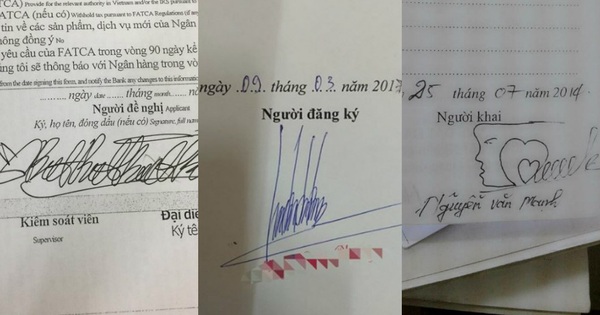 TCA) Provide for the relevant authority in Vietnam and/or the IRS pursuant to
ATCA (nếu có) Withhold tax pursuant to FATCA Regulations (if any
tin về các sản phẩm, dịch vụ mới của Ngân
hông đồng ý No
yêu cầu của FATCA trong vòng 90 ngày kể
úng tôi sẽ thông báo với Ngân hàng trong vò
from the date signing this form, and notify the Bank any changes to this informatio
ngày date tháng month nă
Người đề nghị Applicant
Ký, họ tên, đóng dấu (nếu có) Signature, full name
Kiểm soát viên
Supervisor
Đại diệ
Ký tê
ngày 09 tháng 03 năm 2017
Người đăng ký
25 tháng 07 năm 2014
Người khai
Nguyễn văn Mạnh